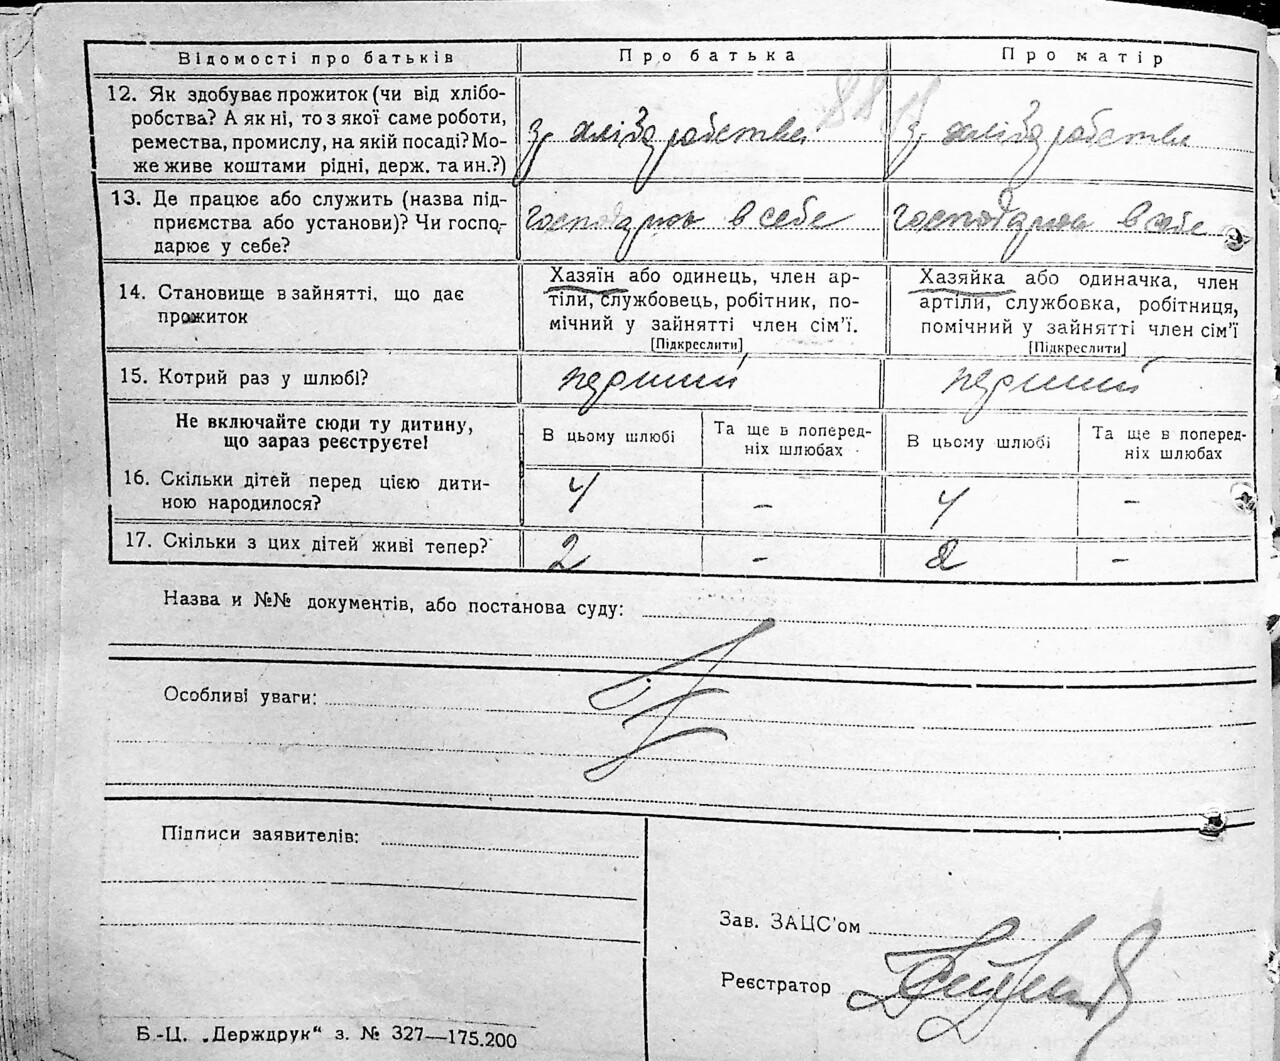 Відомості про батьків
Про батька
Про матір
12. Як здобуває прожиток (чи від хлібо-
робства? А як ні, то з якої саме роботи,
ремества, промислу, на якій посаді? Мо-
же живе коштами рідні, держ. та ин.?)
З хліборобства
З хліборобства
13. Де працює або служить (назва під-
приємства або установи)? Чи госпо-
дарює у себе?
господарює в себе
господарює в себе
14. Становище в зайнятті, що дає
прожиток
Хазяїн або одинець, член ар-
тіли, службовець, робітник, по-
мічний у зайнятті член сім'ї.
[Підкреслити]
Хазяйка або одиначка, член
артіли, службовка, робітниця,
помічний у зайнятті член сім'ї
[Підкреслити]
15. Котрий раз у шлюбі?
перший
перший
Не включайте сюди ту дитину,
що зараз реєструєте!
В цьому шлюбі
Та ще в поперед-
ніх шлюбах
В цьому шлюбі
Та ще в поперед-
ніх шлюбах
16. Скільки дітей перед цією дити-
ною народилося?
4
-
4
-
17. Скільки з цих дітей живі тепер?
2
-
2
-
Назва и №№ документів, або постанова суду:
Особливі уваги:
Підписи заявителів:
Зав. ЗАЦС'ом
Реєстратор
Б.-Ц. „Держдрук“ з. № 327—175.200